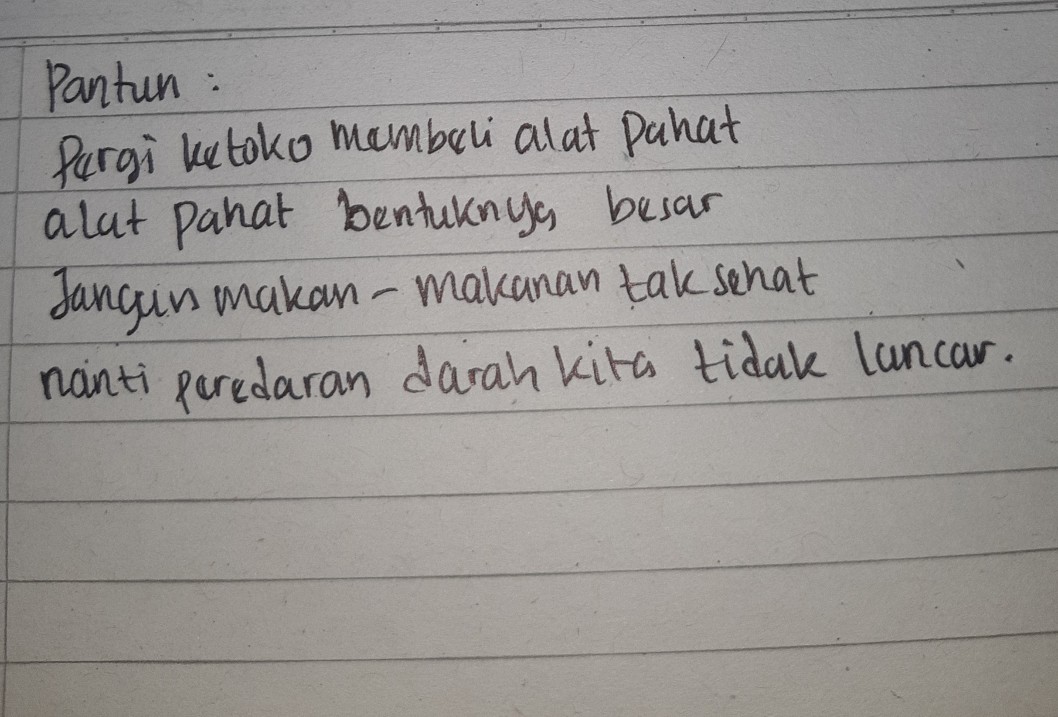 Pantun :
Pergi ketoko membeli alat Pahat
alat Pahat bentuknya besar
Jangan makan - makanan tak sehat
nanti peredaran darah kita tidak lancar.